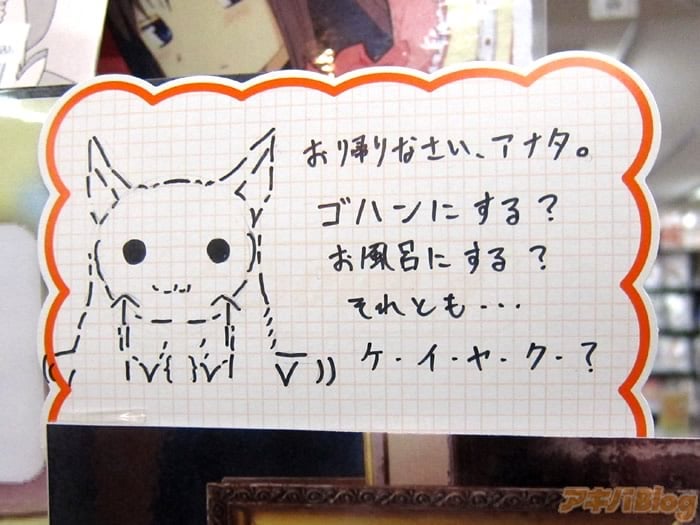 お帰りなさい、アナタ。
ゴハンにする？
お風呂にする？
それとも・・・
ケ・イ・ヤ・ク・？
アキバBlog